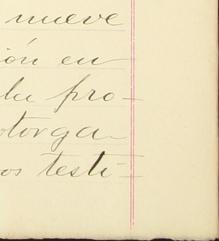 nueve
ión en
la pro-
otorga
os testi-